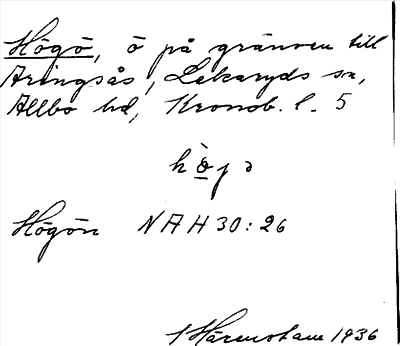 Högö, ö på gränsen till
Aringsås, Lekaryds sn,
Allbo hd, Kronob. l. 5
hö̀jə
Högön NAH 30:26
I Härenstam 1936